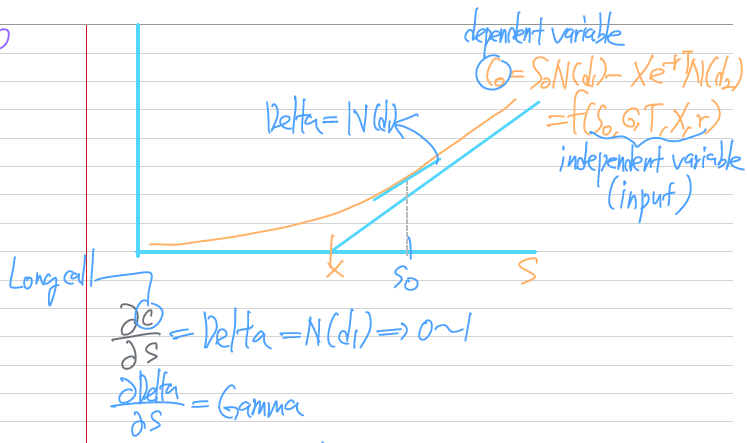 dependent variable
C₀ = S₀N(d₁) - Xe^-rT N(d₂)
= f(S₀, σ, T, X, r)
independent variable
(input)
Delta = N(d₁)
X S₀ S
Long call
∂C/∂S = Delta = N(d₁) ⇒ 0~1
∂Delta/∂S = Gamma